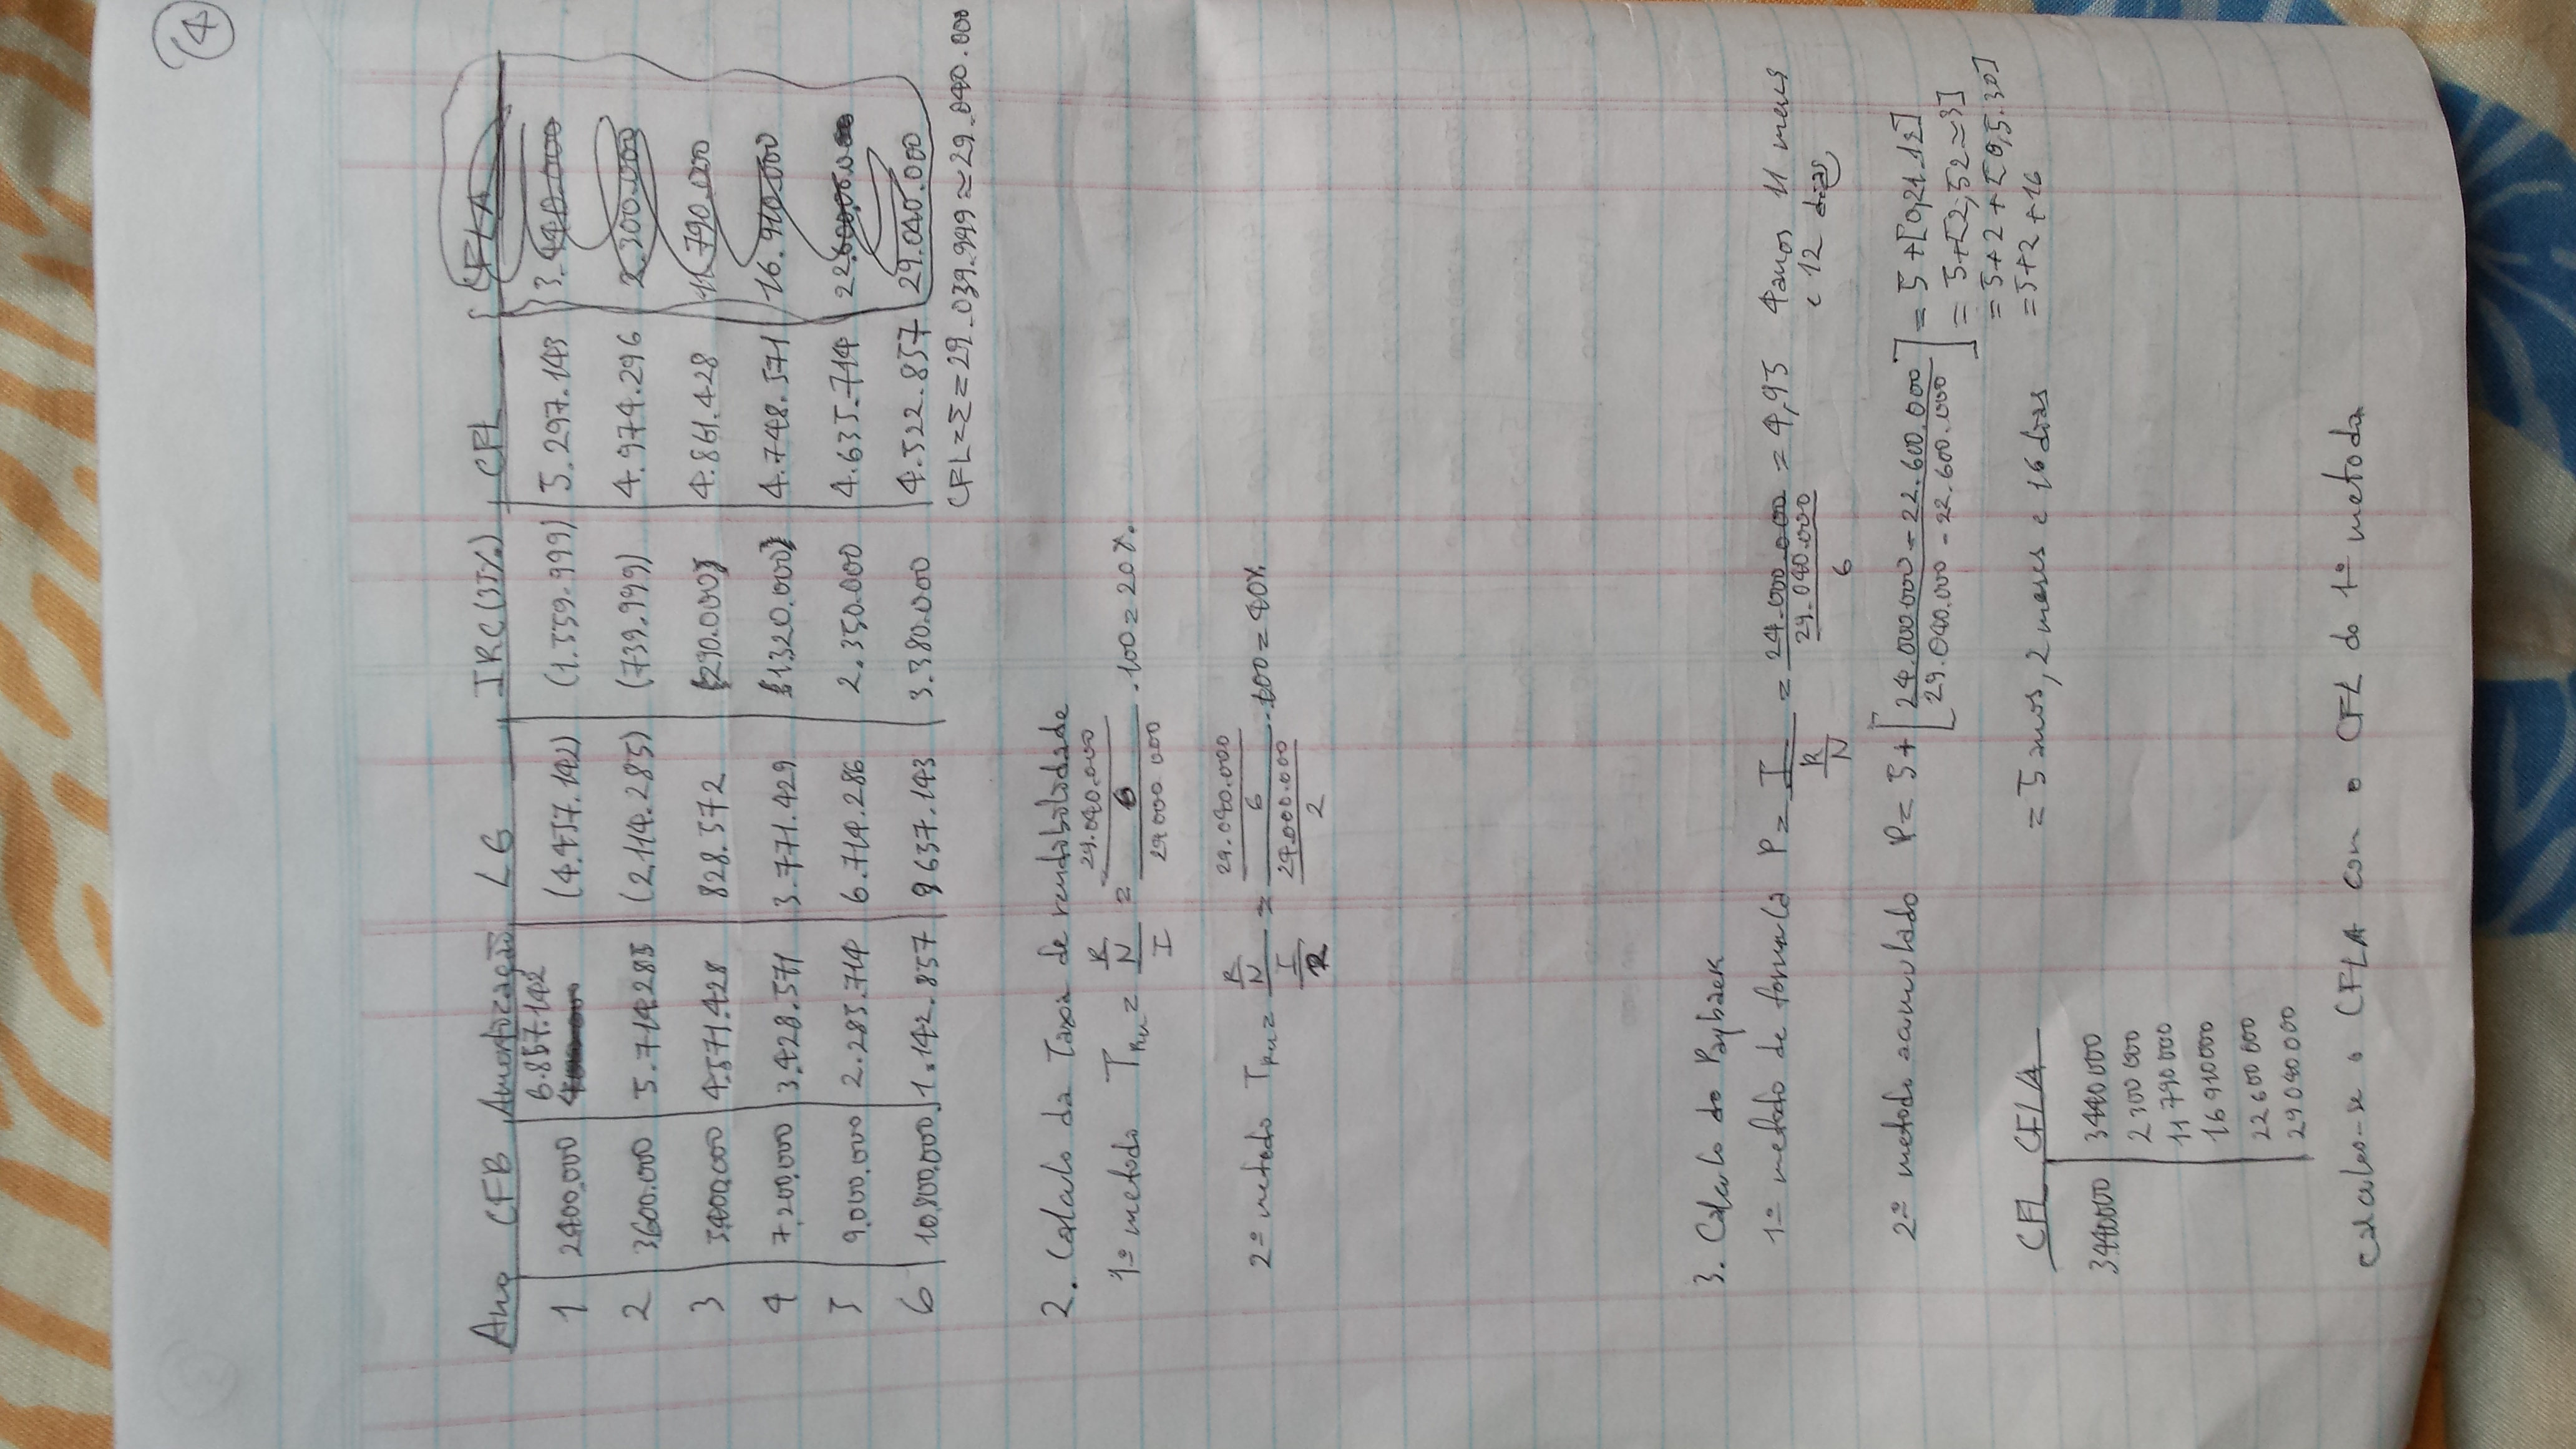 4
Ano CFB Amortização LG IRC (35%) CFL CFLA
6.857.142
1 2400.000 (4.457.142) (1.559.999) 5.297.143 3.440.000
2 3600.000 5.714.285 (2.114.285) (739.999) 4.974.296 2.300.000
3 5400.000 4.571.428 828.572 290.000 4.861.428 11.790.000
4 7.200.000 3.428.571 3.771.429 1320.000 4.748.571 16.910.000
5 9.000.000 2.285.714 6.714.286 2.350.000 4.635.714
6 10.800.000 1.142.857 9657.143 3.380.000 4.522.857 29.040.000
CFL = Σ = 29.039.999 ≈ 29.040.000
2. Calculo da Taxa de rendibilidade
1º metodo TRu = R/N / I = 29.040.000/6 / 24000 000 . 100 = 20%.
2º metodo TRu = R/N / I/2 = 29.040.000/6 / 24.000.000/2 . 100 = 40%
3. Calculo do Payback
1º metodo de formula P = I / R/N = 24.000.000 / 29.040.000/6 = 4,95 4 anos 11 meses
e 12 dias
2º metodo acumulado P = 5 + [24.000.000 - 22.600.000 / 29.040.000 - 22.600.000] = 5 + [0,21.12]
= 5 + [2,52 ≈ 3]
= 5 + 2 + [0,5.30]
= 5 anos, 2 meses e 16 dias = 5 + 2 + 16
CFL CFLA
3440000 3440 000
2 300 000
11 790 000
16 910000
22 600 000
29 040 000
calculo-se o CFLA com o CFL do 1º metodo